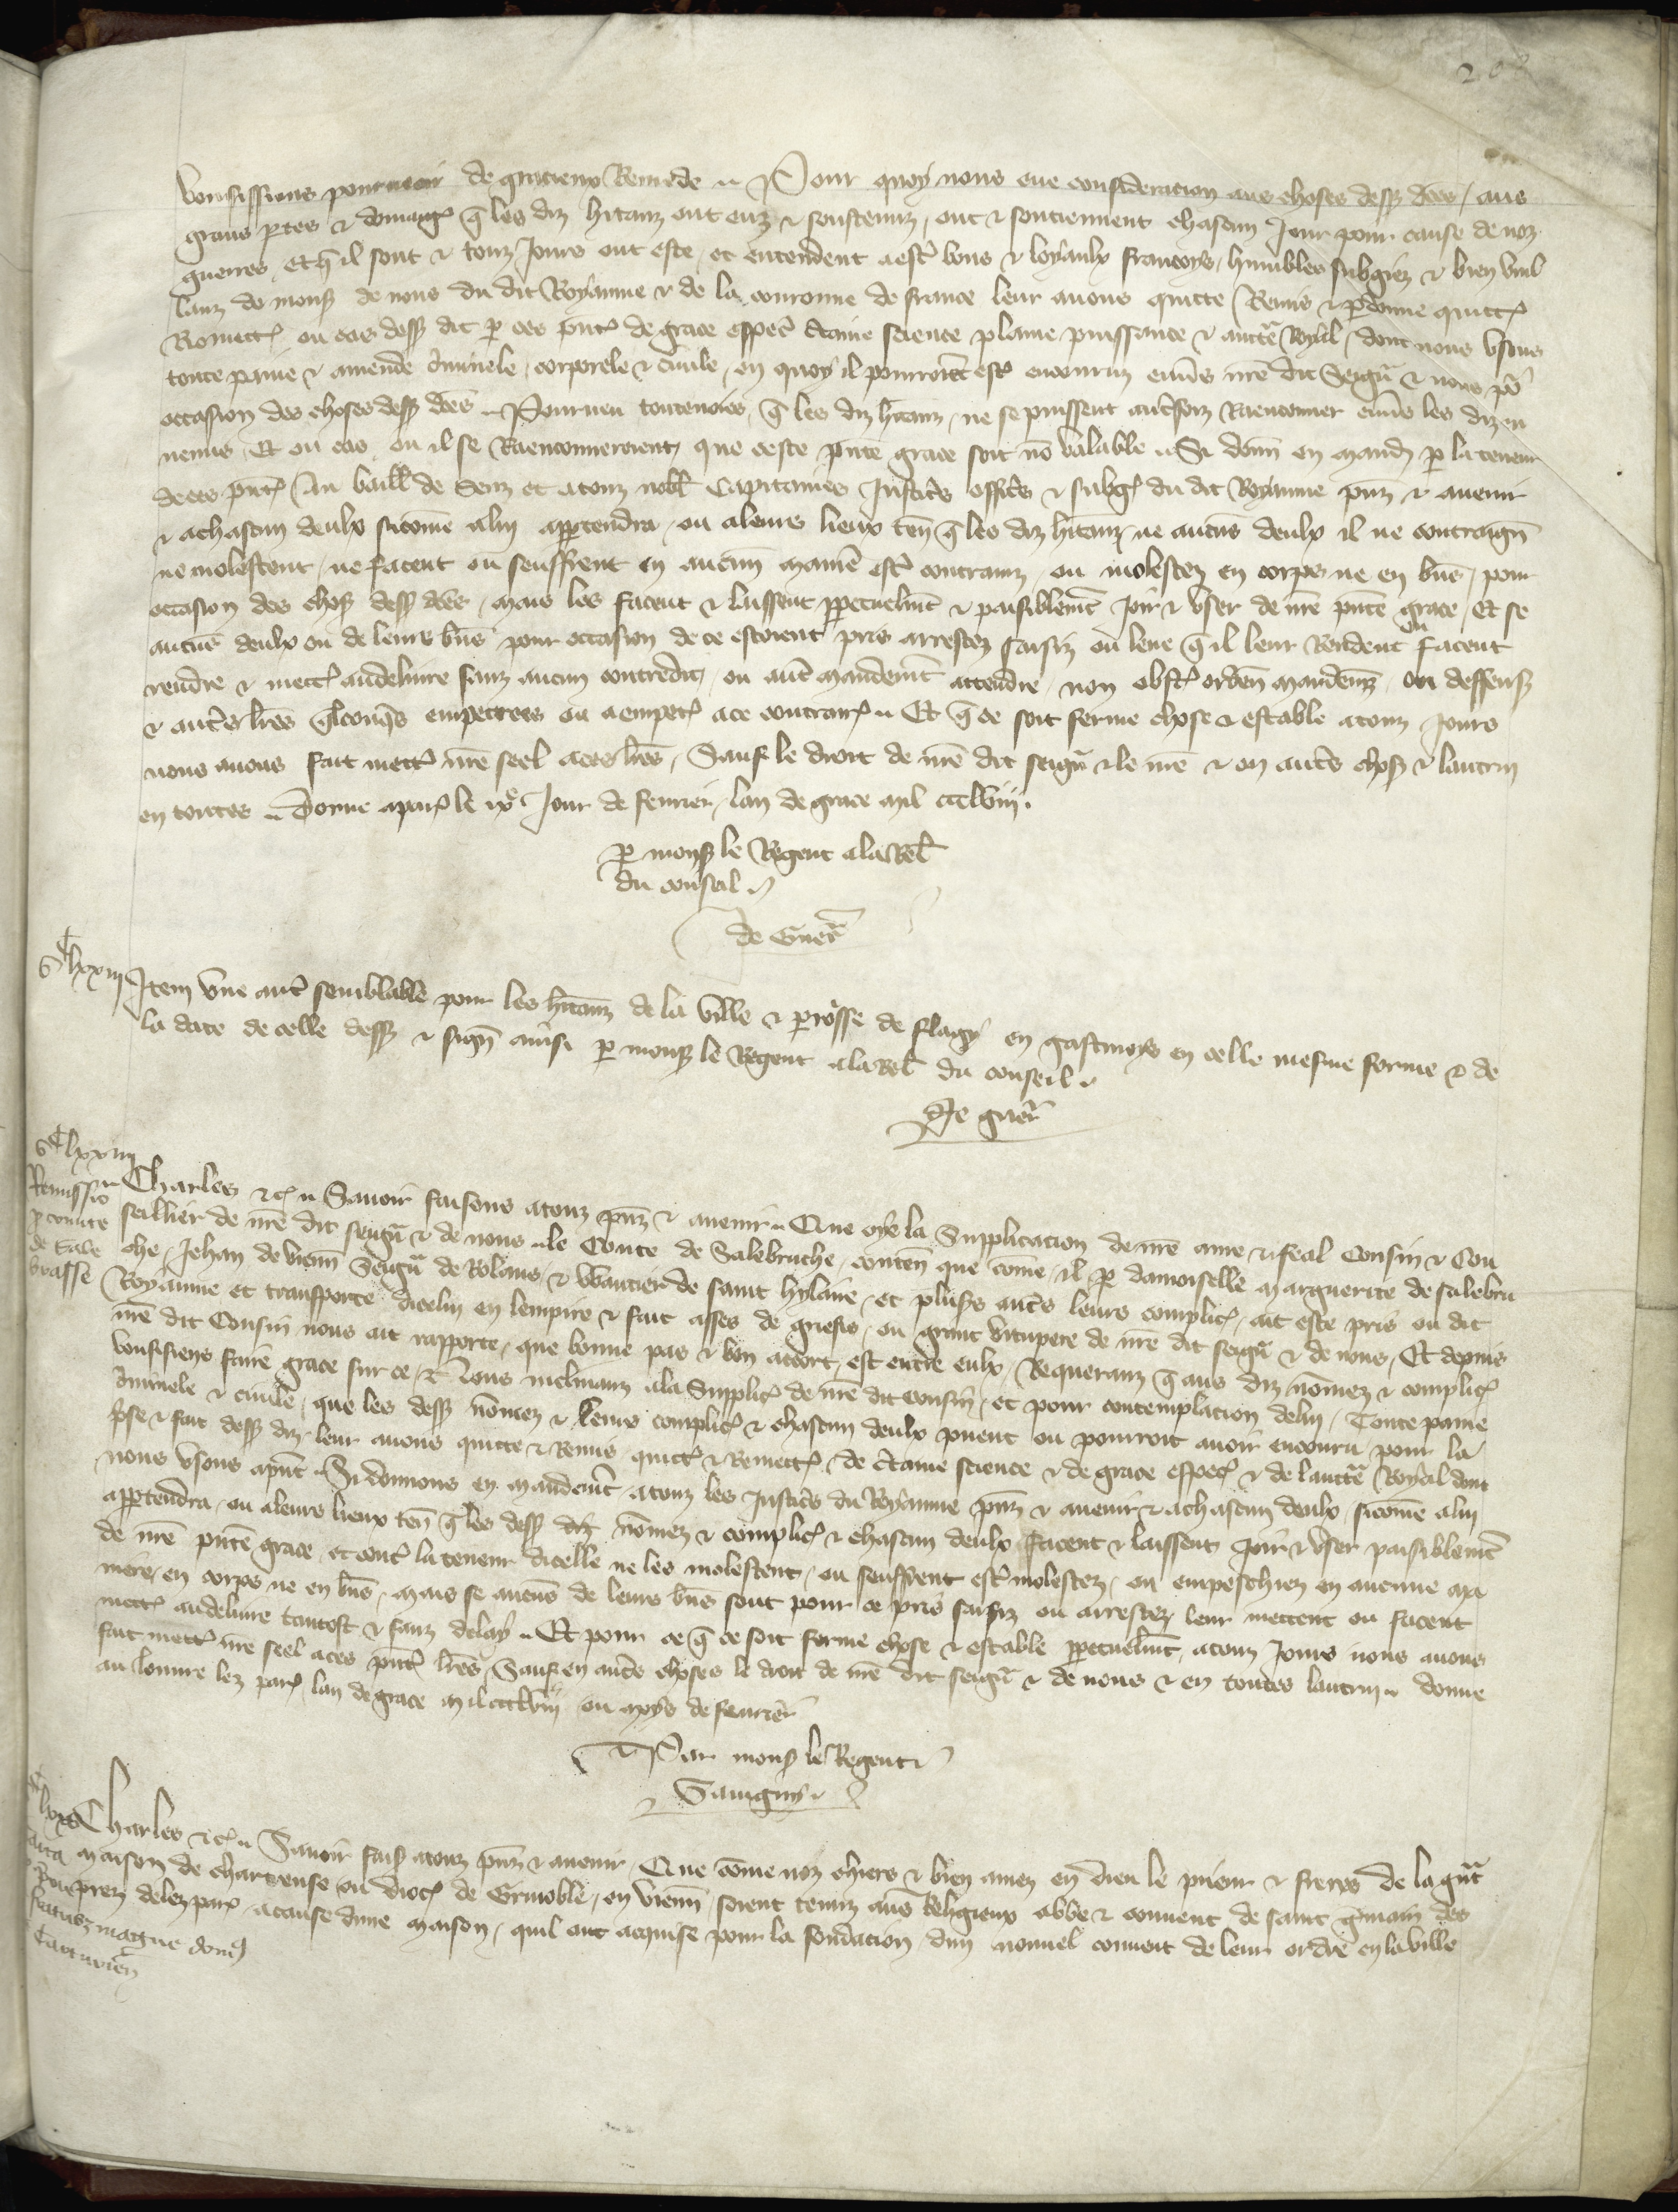 voulsissions pourveoir de gracieux Remede .. Pour quoy nous eue consideracion aus choses dessus dictes / aus
grans pertes & domages q̃ les diz hitanz ont euz & soustenuz, ont & soutiennent chascun Jour pour cause de noz
guerres, Et q̃ il sont & touz Jours ont este, et entendent a estre bons & loyaulx francoys, humbles subgiez & bien vueil
lanz de mons̃ de nous du dit Royaume & de la couronne de france leur avons quicte Remis & perdonne quictons
Remettons ou cas dess̃ dit p ces pñtes de grace especial certaine science plaine puissance & auctorite Royal, dont nous usons
toute paine & amende criminele, corporele & civile, en quoy il pourroient estre encouruz envers nr̃e dit Seigñr & nous pour
occasion des choses dess̃ dces .. Pourveu toutevoies, q̃ les diz hitanz, ne se puissent autrefoiz Raenconner envers les diz en
nemis, Et ou cas, ou il se Raenconneroient, que ceste pñte grace soit nõ valable .. Si donñ en mand̃ p la teneur
de ces pñtes Au baill̃ de Senz et a touz nobl̃ Capitaines Justiciers officiers & subgez du dit Royaume pñz & avenir
& a chascun deulx sicõme a lui appartendra, ou a leurs lieux teñ q̃ les diz hitanz, ne aucũs deulx il ne contraignẽt
ne molestent, ne facent ou seuffrent en aucune maniere estre contrainz, ou molestez en corps ne en biens, pour
occasion des choses dess̃ dces, mais les facent & laissent perpetuelmẽt & paisiblemẽt Joir & user de nr̃e pñte grace, Et se
aucũs deulx ou de leurs biens pour occasion de ce estoient pris arrestez saisiz ou leve q̃ il leur Rendent ou facent
rendre & mectre au delivre sanz aucun contredit, ou autre mandemẽt attendre, non obst̃ ordeñ mandemẽz ou deffenses
& autres lr̃es q̃lconq̃s empetrees ou a empetrer a ce contraires .. Et q̃ ce soit ferme chose & estable a touz Jours
nous avons fait mettre nr̃e seel a ces lr̃es, Sauf le droit de nr̃e dit seigñr & le nr̃e & en autres choses & lautrui
en toutes .. Donne a paris le ixe Jour de fevrier, lan de grace mil ccclviij.
p mons̃ le Regent a la Rel̃
du conseil ..
de Guer̃
clxxiij
Item une autre semblable pour les hitanz de la ville & perroisse de flagy en gastinoys en celle mesme forme & de
la date de celle dess̃ & signee ainsi p mons̃ le Regent a la Rel̃ du conseil ..
De guer̃
clxxiiij
Remissio
p comite
de Sale
brusse
Charles &c̃ .. Savoir faisons a touz pñz & avenir .. Que oye la Supplicacion de nr̃e ame & feal Cousin & Con
seillier de nr̃e dit seigñr & de nous .. le Conte de Salebruche, conteñ que cõme, il p damoiselle Marguerite de salebru
che, Jehan de vienñ Seigñr de Rolans, & Wautier de saint hylaire, et plusrs autres leurs complices, ait este pris ou dit
Royaume et transporte dicelui en lempire & fait asses de griefs, ou grant vitupere de nr̃e dit seigñr & de nous, Et depuis
nr̃e dit Cousin nous ait rapporte, que bonne pais & bon acort, est entre eulx, Requeranz q̃ aus diz nõmez & complices
voulsissiens faire grace sur ce, Nous inclinanz a la Supplic̃ de nr̃e dit cousin, et pour contemplacion delui, Toute paine
criminele & civile, que les dess̃ nõmez & leurs complices & chascun deulx puent ou pourroit avoir encouru pour la
prise & fait dess̃ diz leur avons quicte & Remis, quictons & Remettons de certaine science & de grace especial & de lauctorite Royal dont
nous usons a pñt .. Si donnons en mandemẽt a touz les Justiciers du Royaume pñz & avenir & a chascun deulx, sicõme a lui
appartendra, ou a leurs lieux teñ q̃ les dess̃ diz nõmez & complices & chascun deulx facent & laissent Joir & user paisiblemẽt
de nr̃e pñte grace, et contre la teneur dicelle ne les molestent, ou seuffrent estre molestez, ou empeschiez en aucune ma
niere, en corps ne en biens, mais se aucuns de leurs biens sont pour ce pris saisiz ou arrestez, leur mettent ou facent
mettre au delivre tantost & sanz delay .. Et pour ce q̃ ce soit ferme chose & estable perpetuelmẽt, a touz Jours nous avons
fait mettre nr̃e seel a ces pñtes lr̃es, Sauf en autres choses le droit de nr̃e dit seigñr & de nous & en toutes lautrui .. donne
au louvre lez paris lan de grace mil ccclviij ou moys de fevrier
Par mons̃ le Regent
Savigny ..
clxxv
Charles &c̃ .. Savoir fais̃ a touz pñz & avenir, Que cõme noz chiers & bien amez en dieu le prieur & freres de la grãt
maison de chartreuse ou dioc̃ de Grinoble, en vienñ, soient tenuz aus Religieux abbe & convent de saint Gm̃ain des
prez delez paris a cause dune maison, quil ont acquise pour la fondacion dun nouvel convent de leur ordre en la ville
magne domus
Cartusieñ